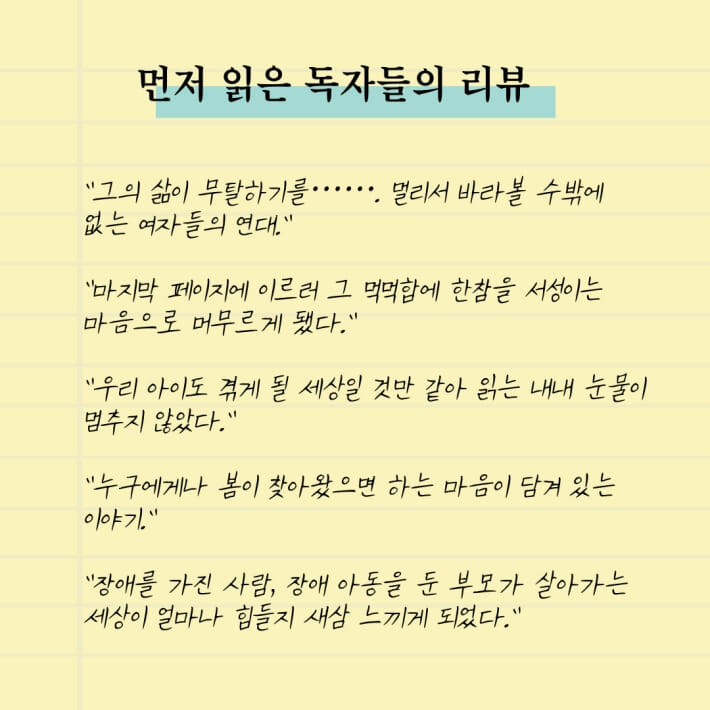 먼저 읽은 독자들의 리뷰
"그의 삶이 무탈하기를……. 멀리서 바라볼 수밖에
없는 여자들의 연대."
"마지막 페이지에 이르러 그 먹먹함에 한참을 서성이는
마음으로 머무르게 됐다."
"우리 아이도 겪게 될 세상일 것만 같아 읽는 내내 눈물이
멈추지 않았다."
"누구에게나 봄이 찾아왔으면 하는 마음이 담겨 있는
이야기."
"장애를 가진 사람, 장애 아동을 둔 부모가 살아가는
세상이 얼마나 힘들지 새삼 느끼게 되었다."